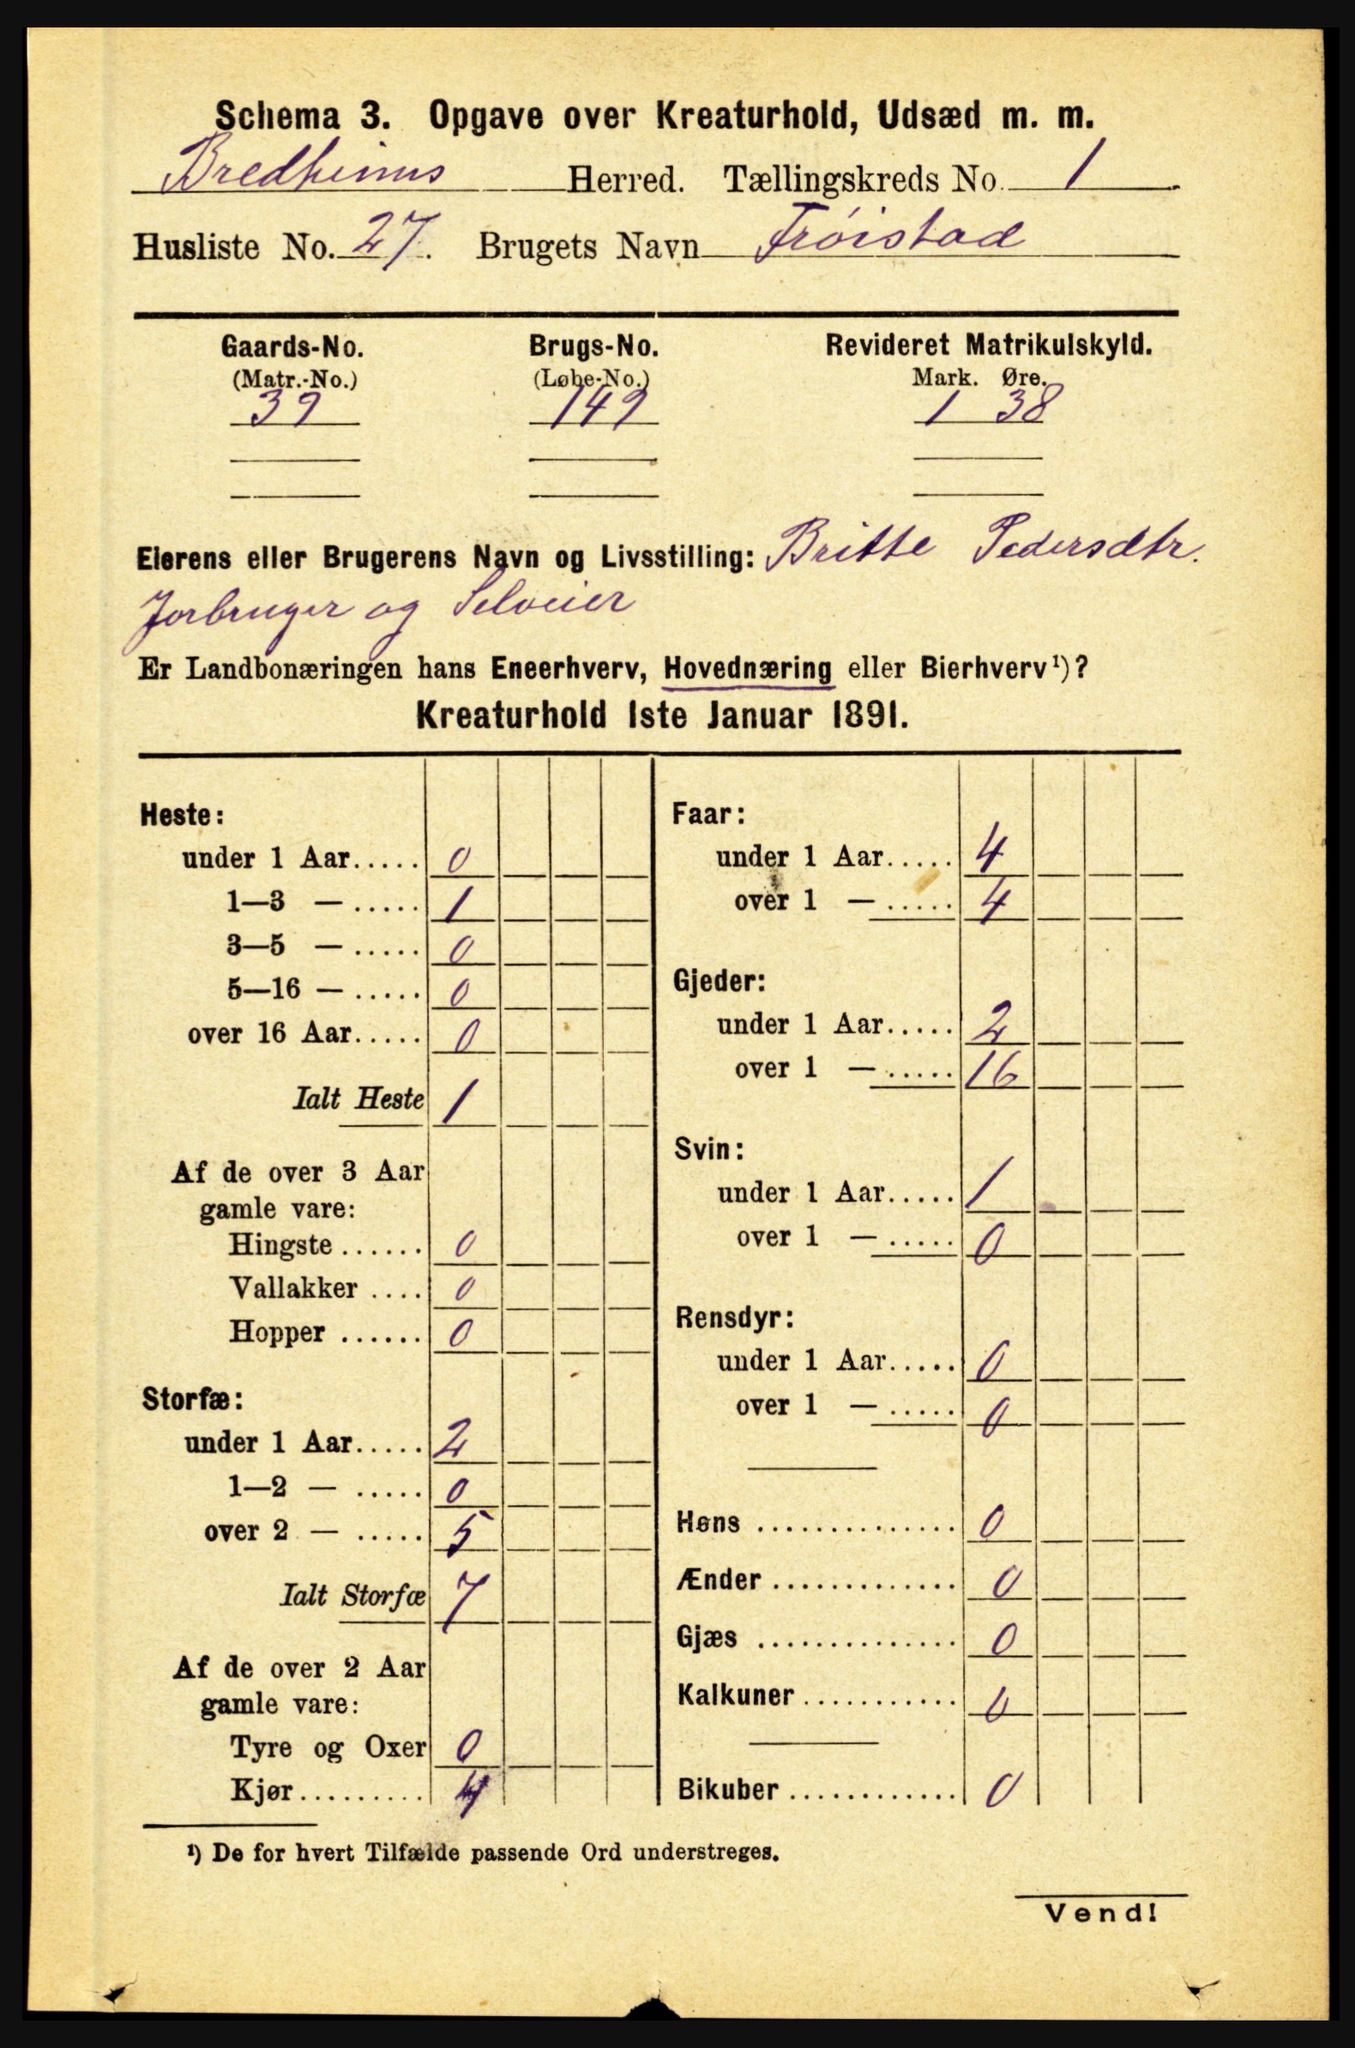 Schema 3. Opgave over Kreaturhold, Udsæd m. m.
Bredheims Herred. Tællingskreds No. 1
Husliste No. 27. Brugets Navn Frøistad
Gaards-No. Brugs-No. Revideret Matrikulskyld.
(Matr.-No.) (Løbe-No.) Mark. Øre.
39 149 1 38
Eierens eller Brugerens Navn og Livsstilling: Britte Pedersdtr.
Jorbruger og Selveier
Er Landbonæringen hans Eneerhverv, Hovednæring eller Bierhverv¹)?
Kreaturhold 1ste Januar 1891.
Heste:
under 1 Aar..... 0
1—3 — ..... 1
3—5 — ..... 0
5—16 — ..... 0
over 16 Aar..... 0
Ialt Heste 1
Af de over 3 Aar
gamle vare:
Hingste ...... 0
Vallakker .... 0
Hopper ...... 0
Storfæ:
under 1 Aar..... 2
1—2 — ..... 0
over 2 — ..... 5
Ialt Storfæ 7
Af de over 2 Aar
gamle vare:
Tyre og Oxer 0
Kjør.........
Faar:
under 1 Aar..... 4
over 1 — ..... 4
Gjeder:
under 1 Aar..... 2
over 1 — ..... 16
Svin:
under 1 Aar..... 1
over 1 — ..... 0
Rensdyr:
under 1 Aar..... 0
over 1 — ..... 0
Høns .............. 0
Ænder ............. 0
Gjæs .............. 0
Kalkuner........... 0
Bikuber ............ 0
¹) De for hvert Tilfælde passende Ord understreges.
Vend!